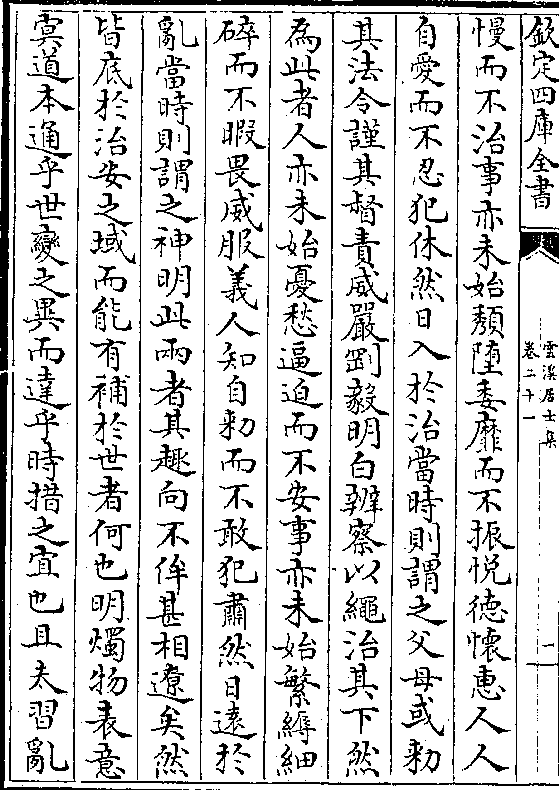 欽定四庫全書
雲溪居士集
卷二十一
慢而不治事亦未始頽墮委靡而不振悦徳懐恵人人
自愛而不忍犯休然日入於治當時則謂之父母或勅
其法令謹其督責威嚴剛毅明白辨察以繩治其下然
為此者人亦未始憂愁逼迫而不安事亦未始繁縟細
碎而不暇畏威服義人知自勅而不敢犯肅然日遠於
亂當時則謂之神明此兩者其趣向不侔甚相遼矣然
皆底於治安之域而能有補於世者何也明燭物表意
㝠道本通乎世變之異而達乎時措之宜也且夫習亂